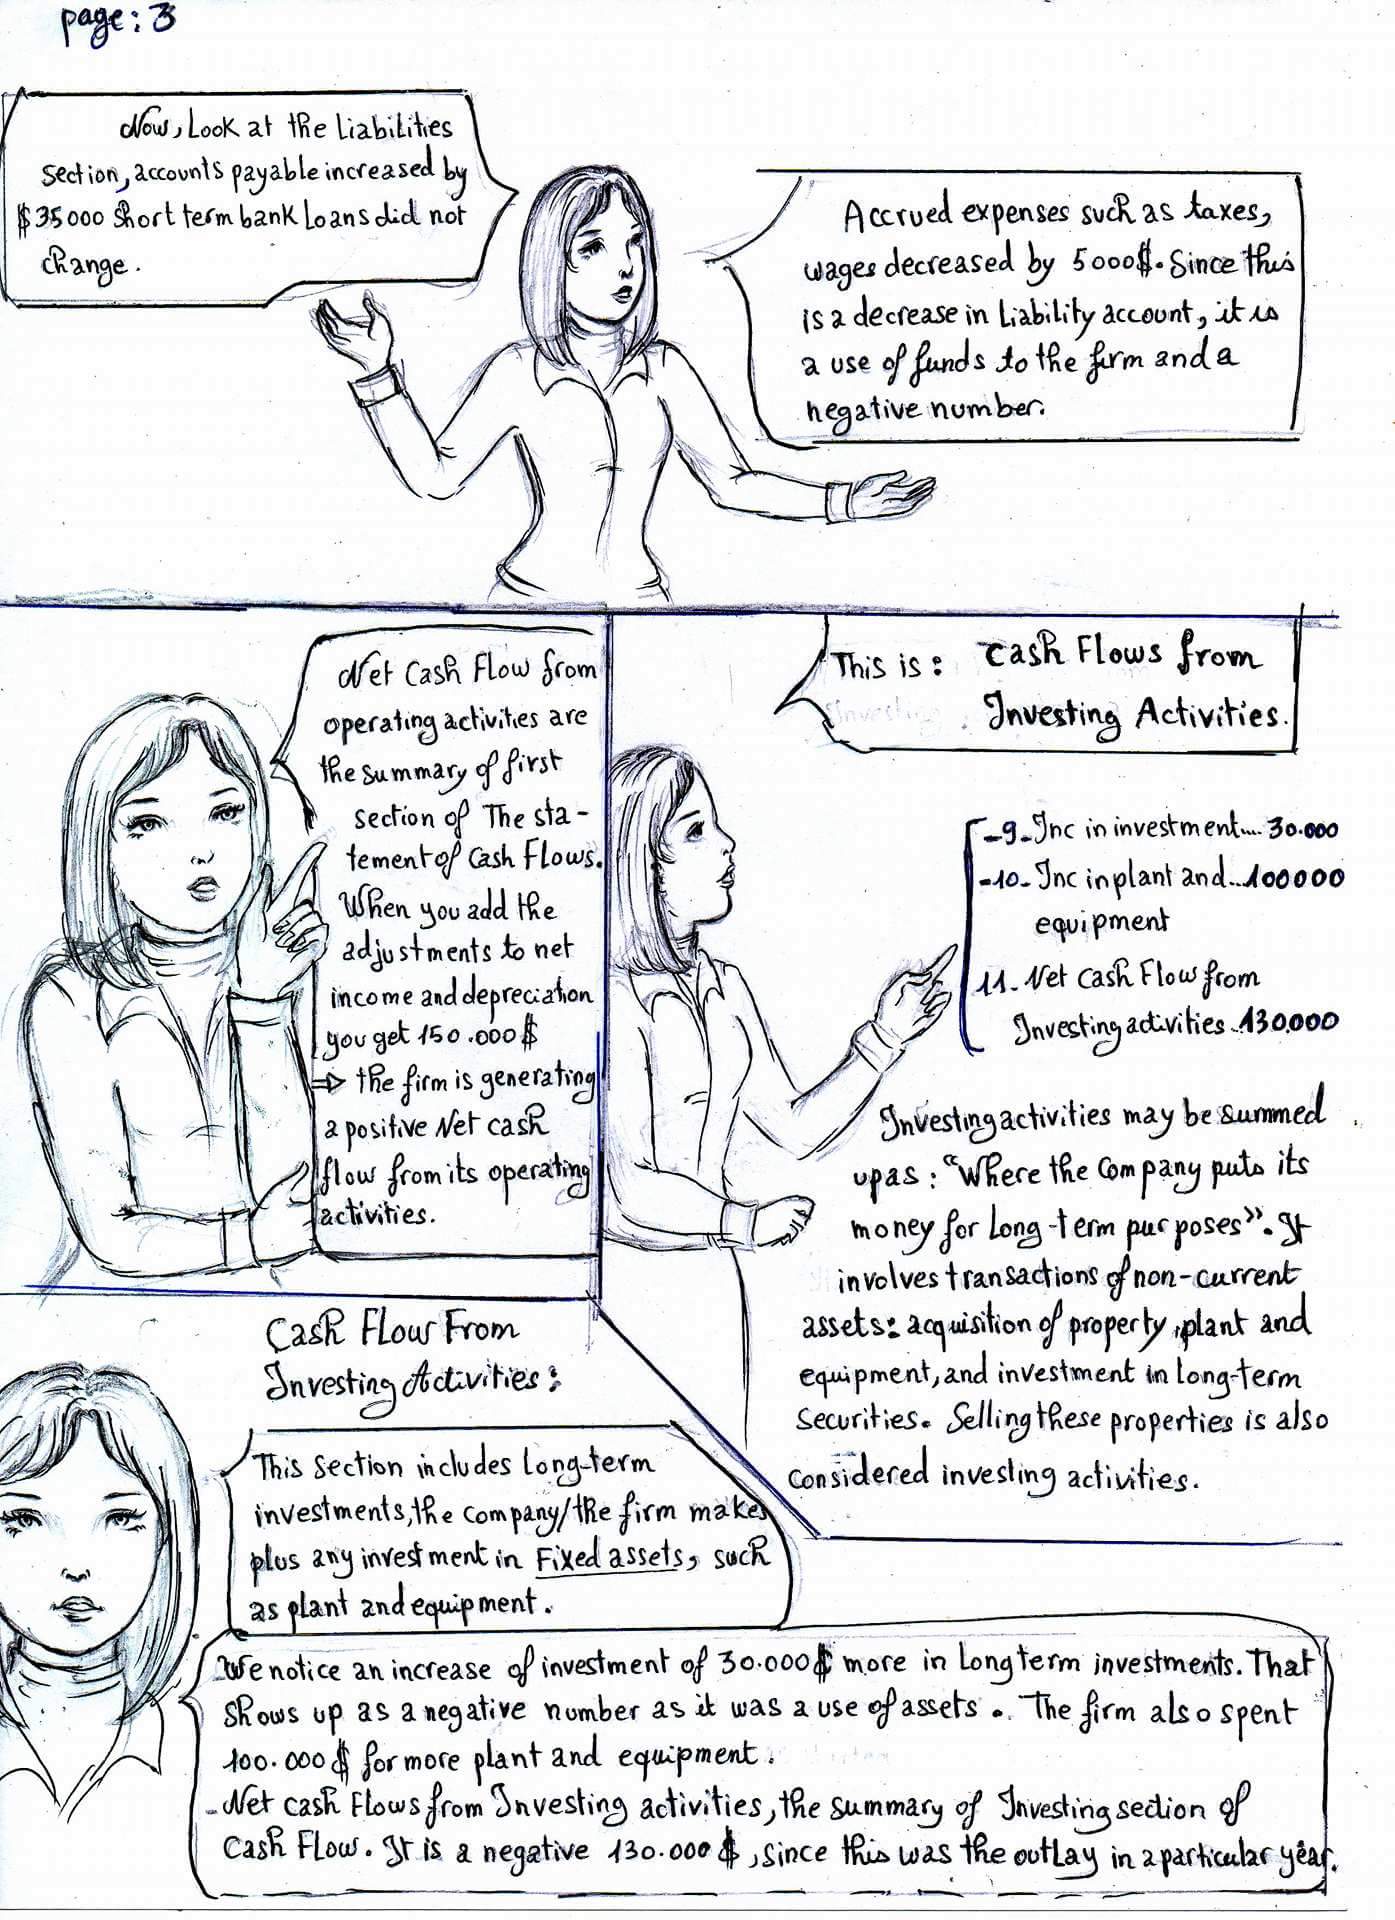 page: 3
Now, Look at the Liabilities
section, accounts payable increased by
$35000 short term bank Loans did not
change.
Accrued expenses such as taxes,
wages decreased by 5000$. Since this
is a decrease in Liability account, it is
a use of funds to the firm and a
negative number.
Net Cash Flow from
operating activities are
the summary of first
section of The sta-
tement of Cash Flows.
When you add the
adjustments to net
income and depreciation
you get 150.000$
⇒ the firm is generating
a positive Net cash
flow from its operating
activities.
This is: Cash Flows from
Investing Activities.
-9- Inc in investment.... 30.000
-10- Inc in plant and...100000
equipment
11- Net Cash Flow from
Investing activities..130.000
Investing activities may be summed
up as: "Where the Company puts its
money for Long-term purposes". It
involves transactions of non-current
assets: acquisition of property, plant and
equipment, and investment in long-term
securities. Selling these properties is also
considered investing activities.
Cash Flow From
Investing Activities:
This section includes Long-term
investments, the company/the firm makes
plus any investment in Fixed assets, such
as plant and equipment.
We notice an increase of investment of 30.000$ more in Long term investments. That
shows up as a negative number as it was a use of assets.. The firm also spent
100.000$ for more plant and equipment.
-Net cash Flows from Investing activities, the summary of Investing section of
Cash Flow. It is a negative 130.000$, since this was the outlay in a particular year.